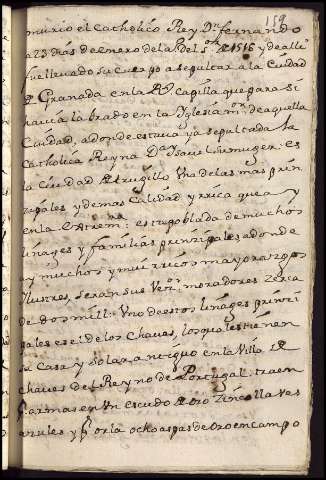 159
murio el Catholico Rey Dn fernando
a 23 dias de enero de la del Sr de 1516 y de alli
fue llevado su cuerpo a sepultar a la Ciudad
de Granada en la Rl capilla que para si
havia labrado en la Yglesia mor de aquella
Ciudad, adonde estava ya sepultada la
Catholica Reyna Da Ysavel su muger. es
la Ciudad de trugillo Vna de las mas prin
zipales y de mas calidad y rrica que ay
en la Extremra: es tepoblada de muchos
linages y familias prinzipales adonde
ay muchos y mui rricos mayorazgos
Ylustres, seran sus Vezos moradores zerca
de dos mill: Vno de estos linages prinzi
pales es el de los Chaves, los quales tienen
su Casa y solar antiguo en la Villa de
chaves del Reyno de Portugal traen
por armas en Vn escudo de oro zinco llaves
azules y por orla ocho aspas de oro en campo